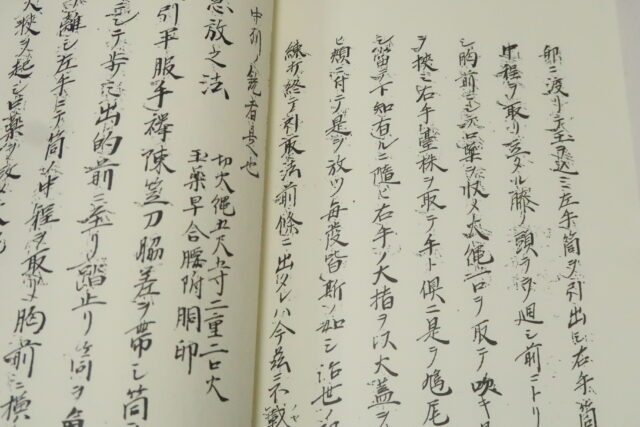 卯ニ渡リ玉ヲ込ミ左手筒ヲ引出シ右手筒
中程ヲ取リ立タル膝ノ頭ヲ廻シ前ニトリ
シ胸前ニテ口薬ヲ火縄口ヲ取テ吹キ
ヲ挟ミ右手臺株ヲ取テ手ト倶ニ是ヲ鳩尾
當テ下知有ルニ隨ヒ右手ノ大指ヲ以火蓋ヲ
ヒ頬ニ付テ是ヲ放ツ毎發皆斯ノ如シ治世ノ
終テ引取法前條ニ出タレハ今茲ニ不載
中列ノ者是也
急放之法
切火縄五尺五寸二重二口火
玉薬早合腰附胴卯
引平服手襷陳笠刀脇差ヲ帯シ筒
ニテ歩ミ出的前ニ至リ踏止リ筒ヲ
離シ左手ニテ筒ノ中程ヲ取リ胸前ニ横
火狭ヲ起シ口薬ヲ